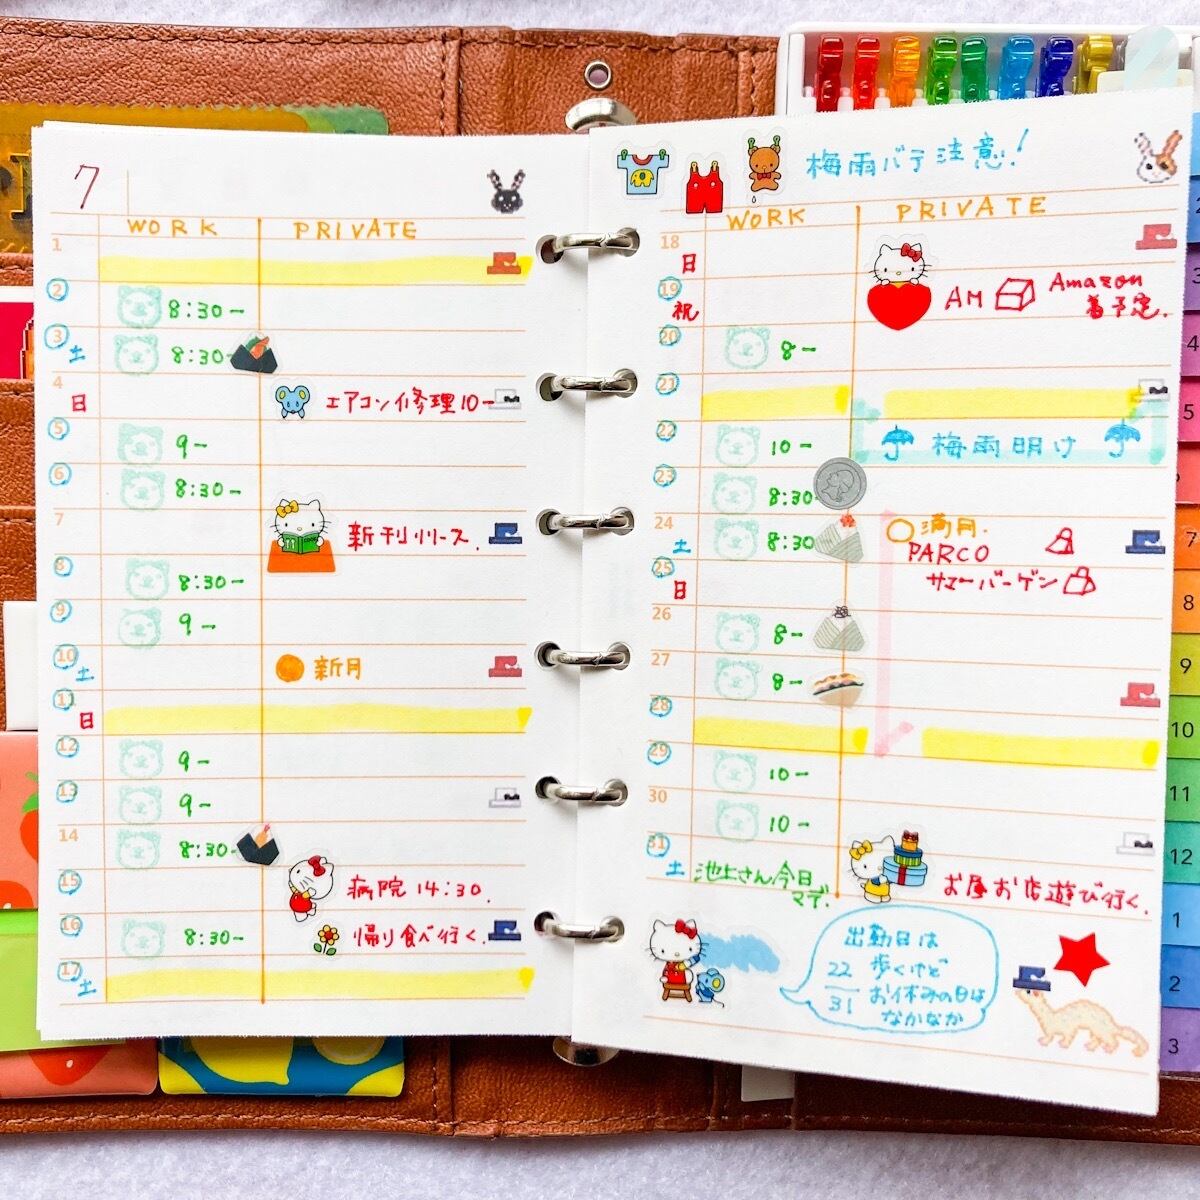 7
WORK PRIVATE
1
2 8:30-
3 土 8:30
4 日 エアコン修理10-
5 9-
6 8:30-
7 新刊リリース.
8 8:30-
9 9-
10 土 新月
11 日
12 9-
13 9-
14 8:30-
15 病院 14:30.
16 8:30- 帰り食べ行く.
17 土
梅雨バテ注意!
WORK PRIVATE
18 日
19 祝 AM Amazon
着予定.
20 8-
21
22 10- 梅雨明け
23 8:30
24 土 8:30 満月.
PARCO
25 日 サマーバーゲン
26 8-
27 8-
28
29 10-
30 10-
31 土 池上さん今日
マデ. お昼お店遊び行く.
出勤日は
22 歩くけど
31 お休みの日は
なかなか
3
4
5
7
8
9
10
11
12
1
2
3